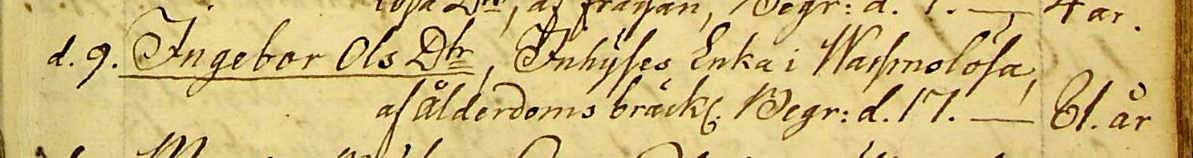 lösa Dtr, af frågan, Begr: d. 7. — 4 år.
d. 9. Ingebor Ols Dtr, Inhyses Enka i Wassmolösa,
af ålderdoms bräckl. Begr: d. 17. — 81. år